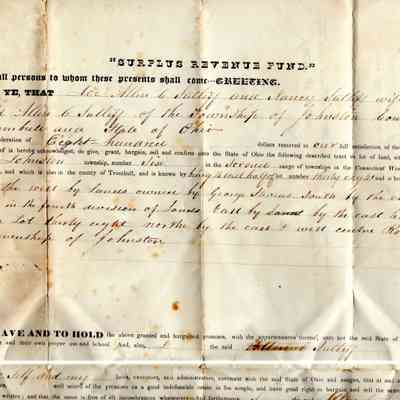 "SURPLUS REVENUE FUND."
all persons to whom these presents shall come—GREETING.
YE, THAT We Allen C Sutliff and Nancy Sutliff wife
Allen C Sutliff of the Township of Johnston
and State of Ohio
Eight hundred dollars received in our full satisfaction, of the
of is hereby acknowledged, do give, grant, bargain, sell and confirm unto the State of Ohio the following described tract or lot of land,
Johnston township, number in the Second range of townships in the Connecticut West
and which is also in the county of Trumbull, and is known by being the west half of number thirty eight and is
the west by lands owned by George South by the
in the fourth division of lands East by lands by the east
Lot thirty eight north by the east & west centre
Township of Johnston
HAVE AND TO HOLD the above granted and bargained premises, with the appurtenances thereof, unto the said State of
and their own proper use and behoof. And, also, I the said Sutliff
self and my heirs, executors, and administrators, covenant with the said State of Ohio and assigns, that at and
well seized of the premises as a good indefeasible estate in fee simple, and have good right to bargain and sell the same
written; and that the same is free of all incumbrances whatsoever